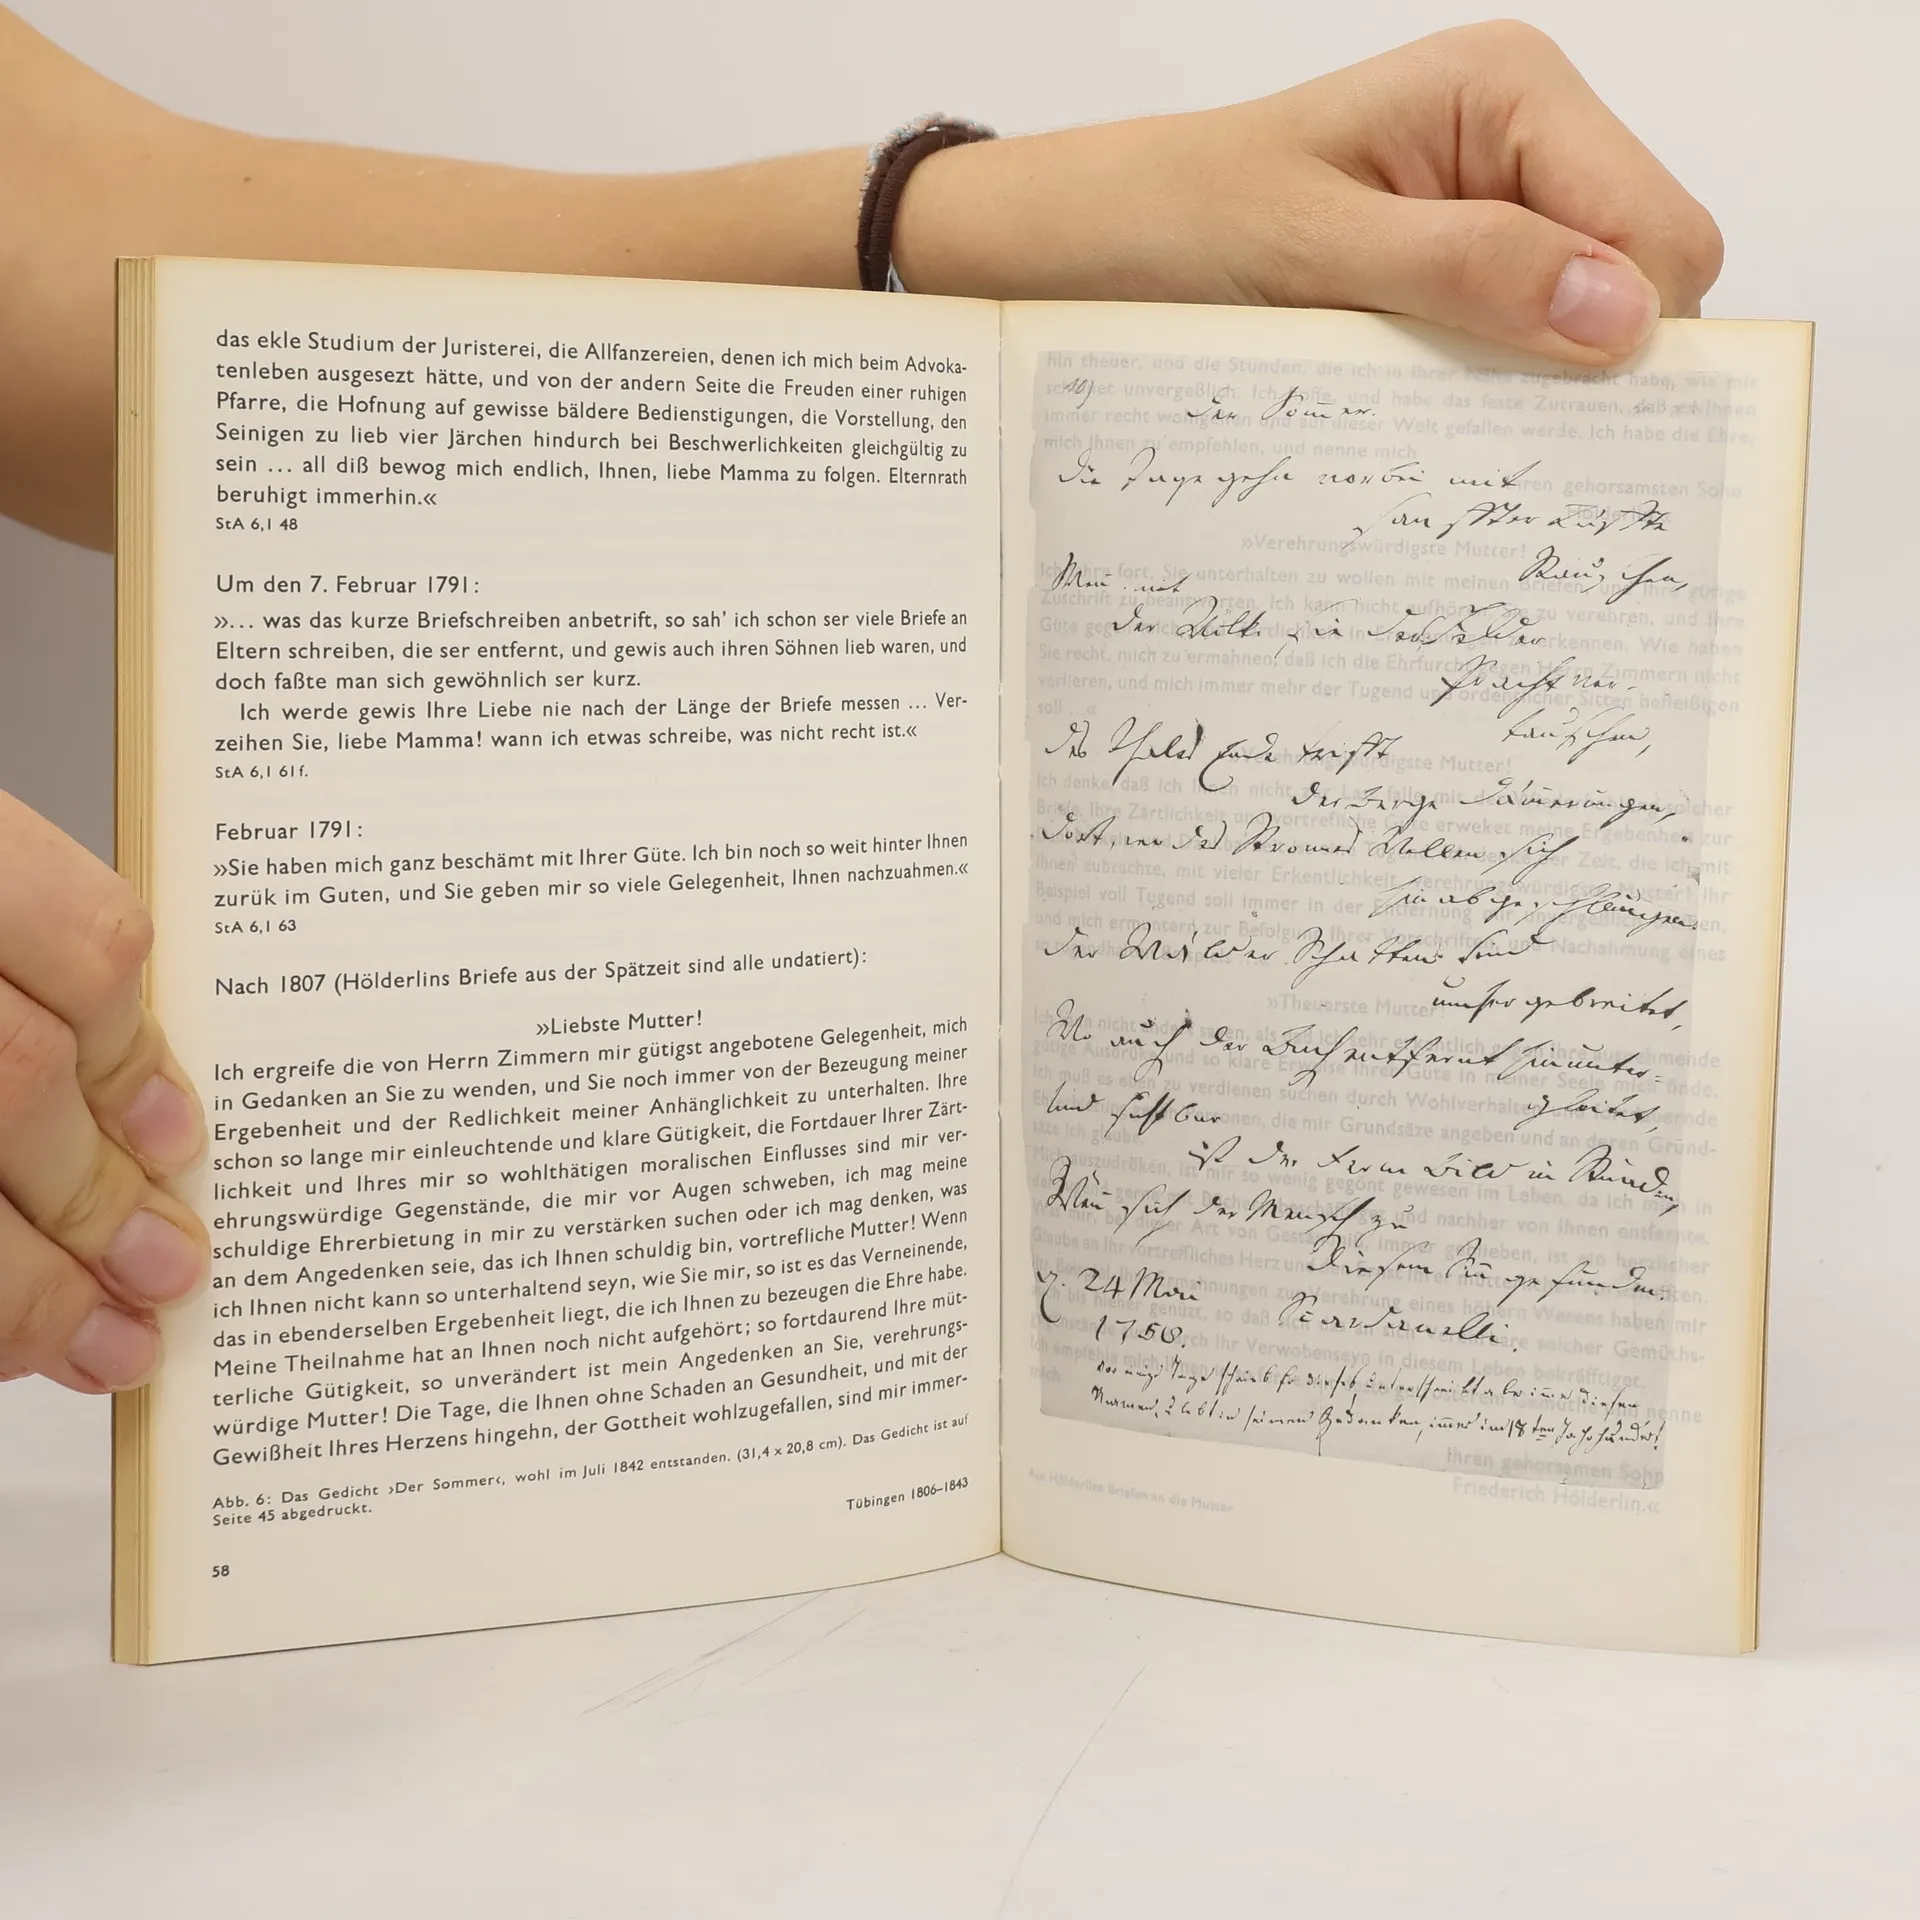 das ekle Studium der Juristerei, die Allfanzereien, denen ich mich beim Advoka-
tenleben ausgesezt hätte, und von der andern Seite die Freuden einer ruhigen
Pfarre, die Hofnung auf gewisse bäldere Bedienstigungen, die Vorstellung, den
Seinigen zu lieb vier Järchen hindurch bei Beschwerlichkeiten gleichgültig zu
sein ... all diß bewog mich endlich, Ihnen, liebe Mamma zu folgen. Elternrath
beruhigt immerhin.«
StA 6,1 48
Um den 7. Februar 1791:
»... was das kurze Briefschreiben anbetrift, so sah' ich schon ser viele Briefe an
Eltern schreiben, die ser entfernt, und gewis auch ihren Söhnen lieb waren, und
doch faßte man sich gewöhnlich ser kurz.
Ich werde gewis Ihre Liebe nie nach der Länge der Briefe messen ... Ver-
zeihen Sie, liebe Mamma! wann ich etwas schreibe, was nicht recht ist.«
StA 6,1 61f.
Februar 1791:
»Sie haben mich ganz beschämt mit Ihrer Güte. Ich bin noch so weit hinter Ihnen
zurük im Guten, und Sie geben mir so viele Gelegenheit, Ihnen nachzuahmen.«
StA 6,1 63
Nach 1807 (Hölderlins Briefe aus der Spätzeit sind alle undatiert):
»Liebste Mutter!
Ich ergreife die von Herrn Zimmern mir gütigst angebotene Gelegenheit, mich
in Gedanken an Sie zu wenden, und Sie noch immer von der Bezeugung meiner
Ergebenheit und der Redlichkeit meiner Anhänglichkeit zu unterhalten. Ihre
schon so lange mir einleuchtende und klare Gütigkeit, die Fortdauer Ihrer Zärt-
lichkeit und Ihres mir so wohlthätigen moralischen Einflusses sind mir ver-
ehrungswürdige Gegenstände, die mir vor Augen schweben, ich mag meine
schuldige Ehrerbietung in mir zu verstärken suchen oder ich mag denken, was
an dem Angedenken seie, das ich Ihnen schuldig bin, vortrefliche Mutter! Wenn
ich Ihnen nicht kann so unterhaltend seyn, wie Sie mir, so ist es das Verneinende,
das in ebenderselben Ergebenheit liegt, die ich Ihnen zu bezeugen die Ehre habe.
Meine Theilnahme hat an Ihnen noch nicht aufgehört; so fortdaurend Ihre müt-
terliche Gütigkeit, so unverändert ist mein Angedenken an Sie, verehrungs-
würdige Mutter! Die Tage, die Ihnen ohne Schaden an Gesundheit, und mit der
Gewißheit Ihres Herzens hingehn, der Gottheit wohlzugefallen, sind mir immer-
Abb. 6: Das Gedicht ›Der Sommer‹, wohl im Juli 1842 entstanden. (31,4 x 20,8 cm). Das Gedicht ist auf
Seite 45 abgedruckt.
Tübingen 1806–1843
58
Der Sommer.
Die Tage gehn vorbei mit
sanffter Lüffte
Rauschen,
Wenn mit
der Wolke sie der Felder
Pracht ver-
tauschen,
Des Thales Ende trifft
der Berge Dämerungen,
Dort, wo des Stromes Wellen sich
hinabgeschlungen.
Der Wälder Schatten sind
umhergebreitet,
Wo auch der Bach entfernt hinunter-
gleitet,
Und sichtbar
ist der Ferne Bild in Stunden,
Wenn sich der Mensch zu
diesem Sinn gefunden.
d. 24 Mai
1758.
Scardanelli.